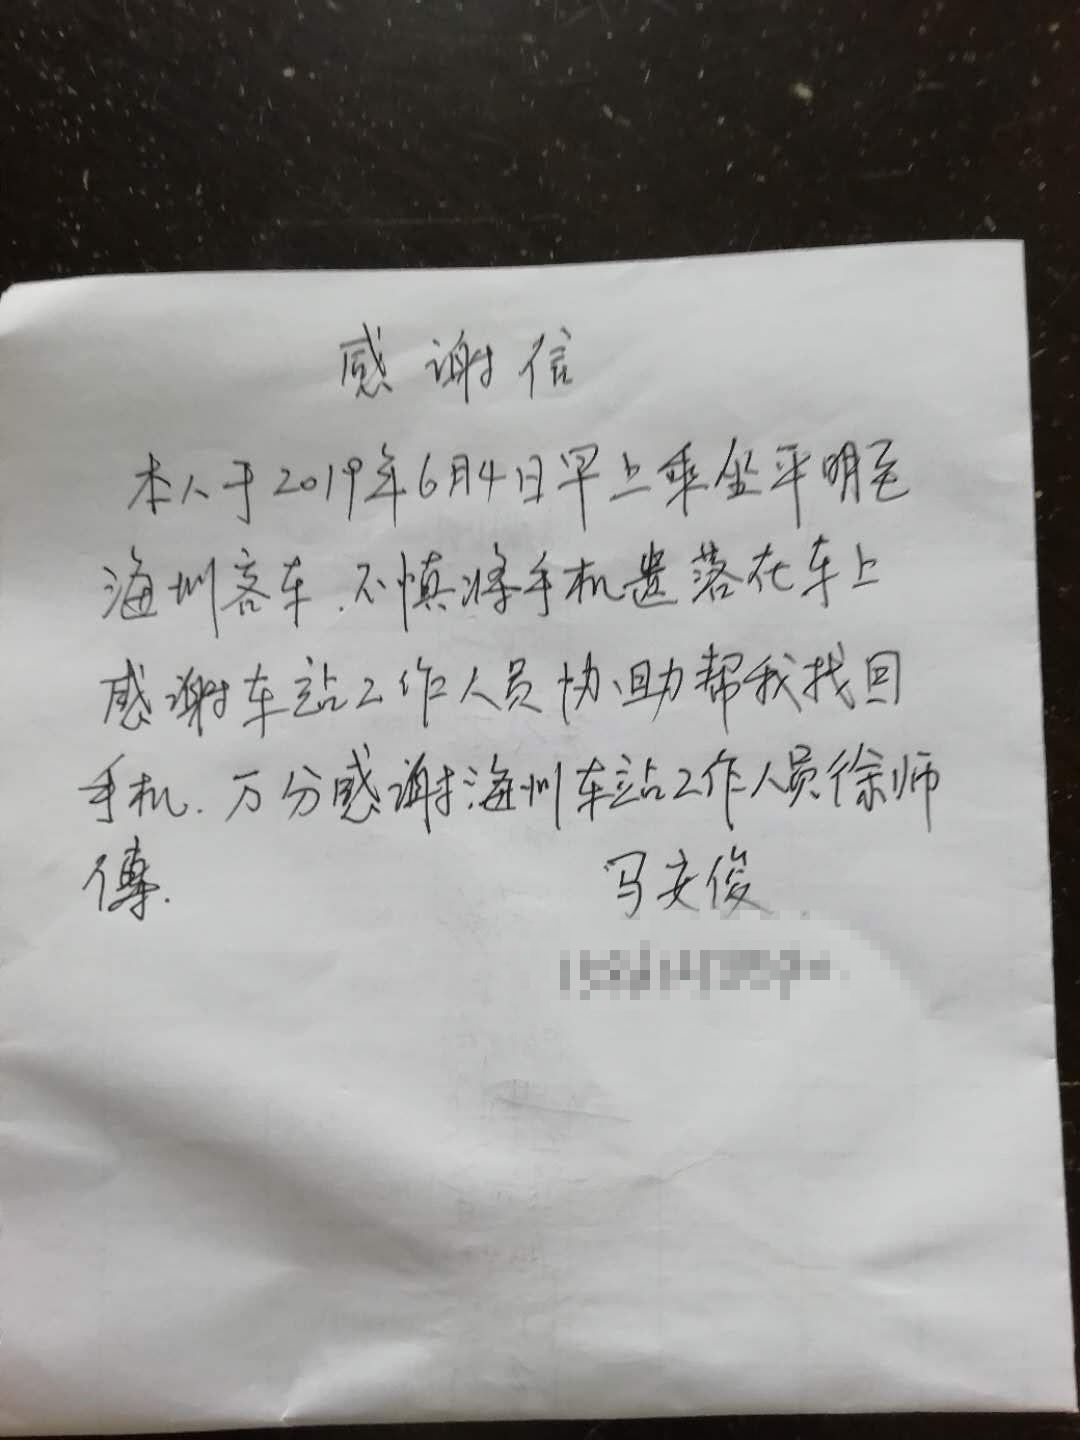 感谢信
本人于2019年6月4日早上乘坐平明至
海州客车.不慎将手机遗落在车上
感谢车站工作人员协助帮我找回
手机.万分感谢海州车站工作人员徐师
傅.
马安俊